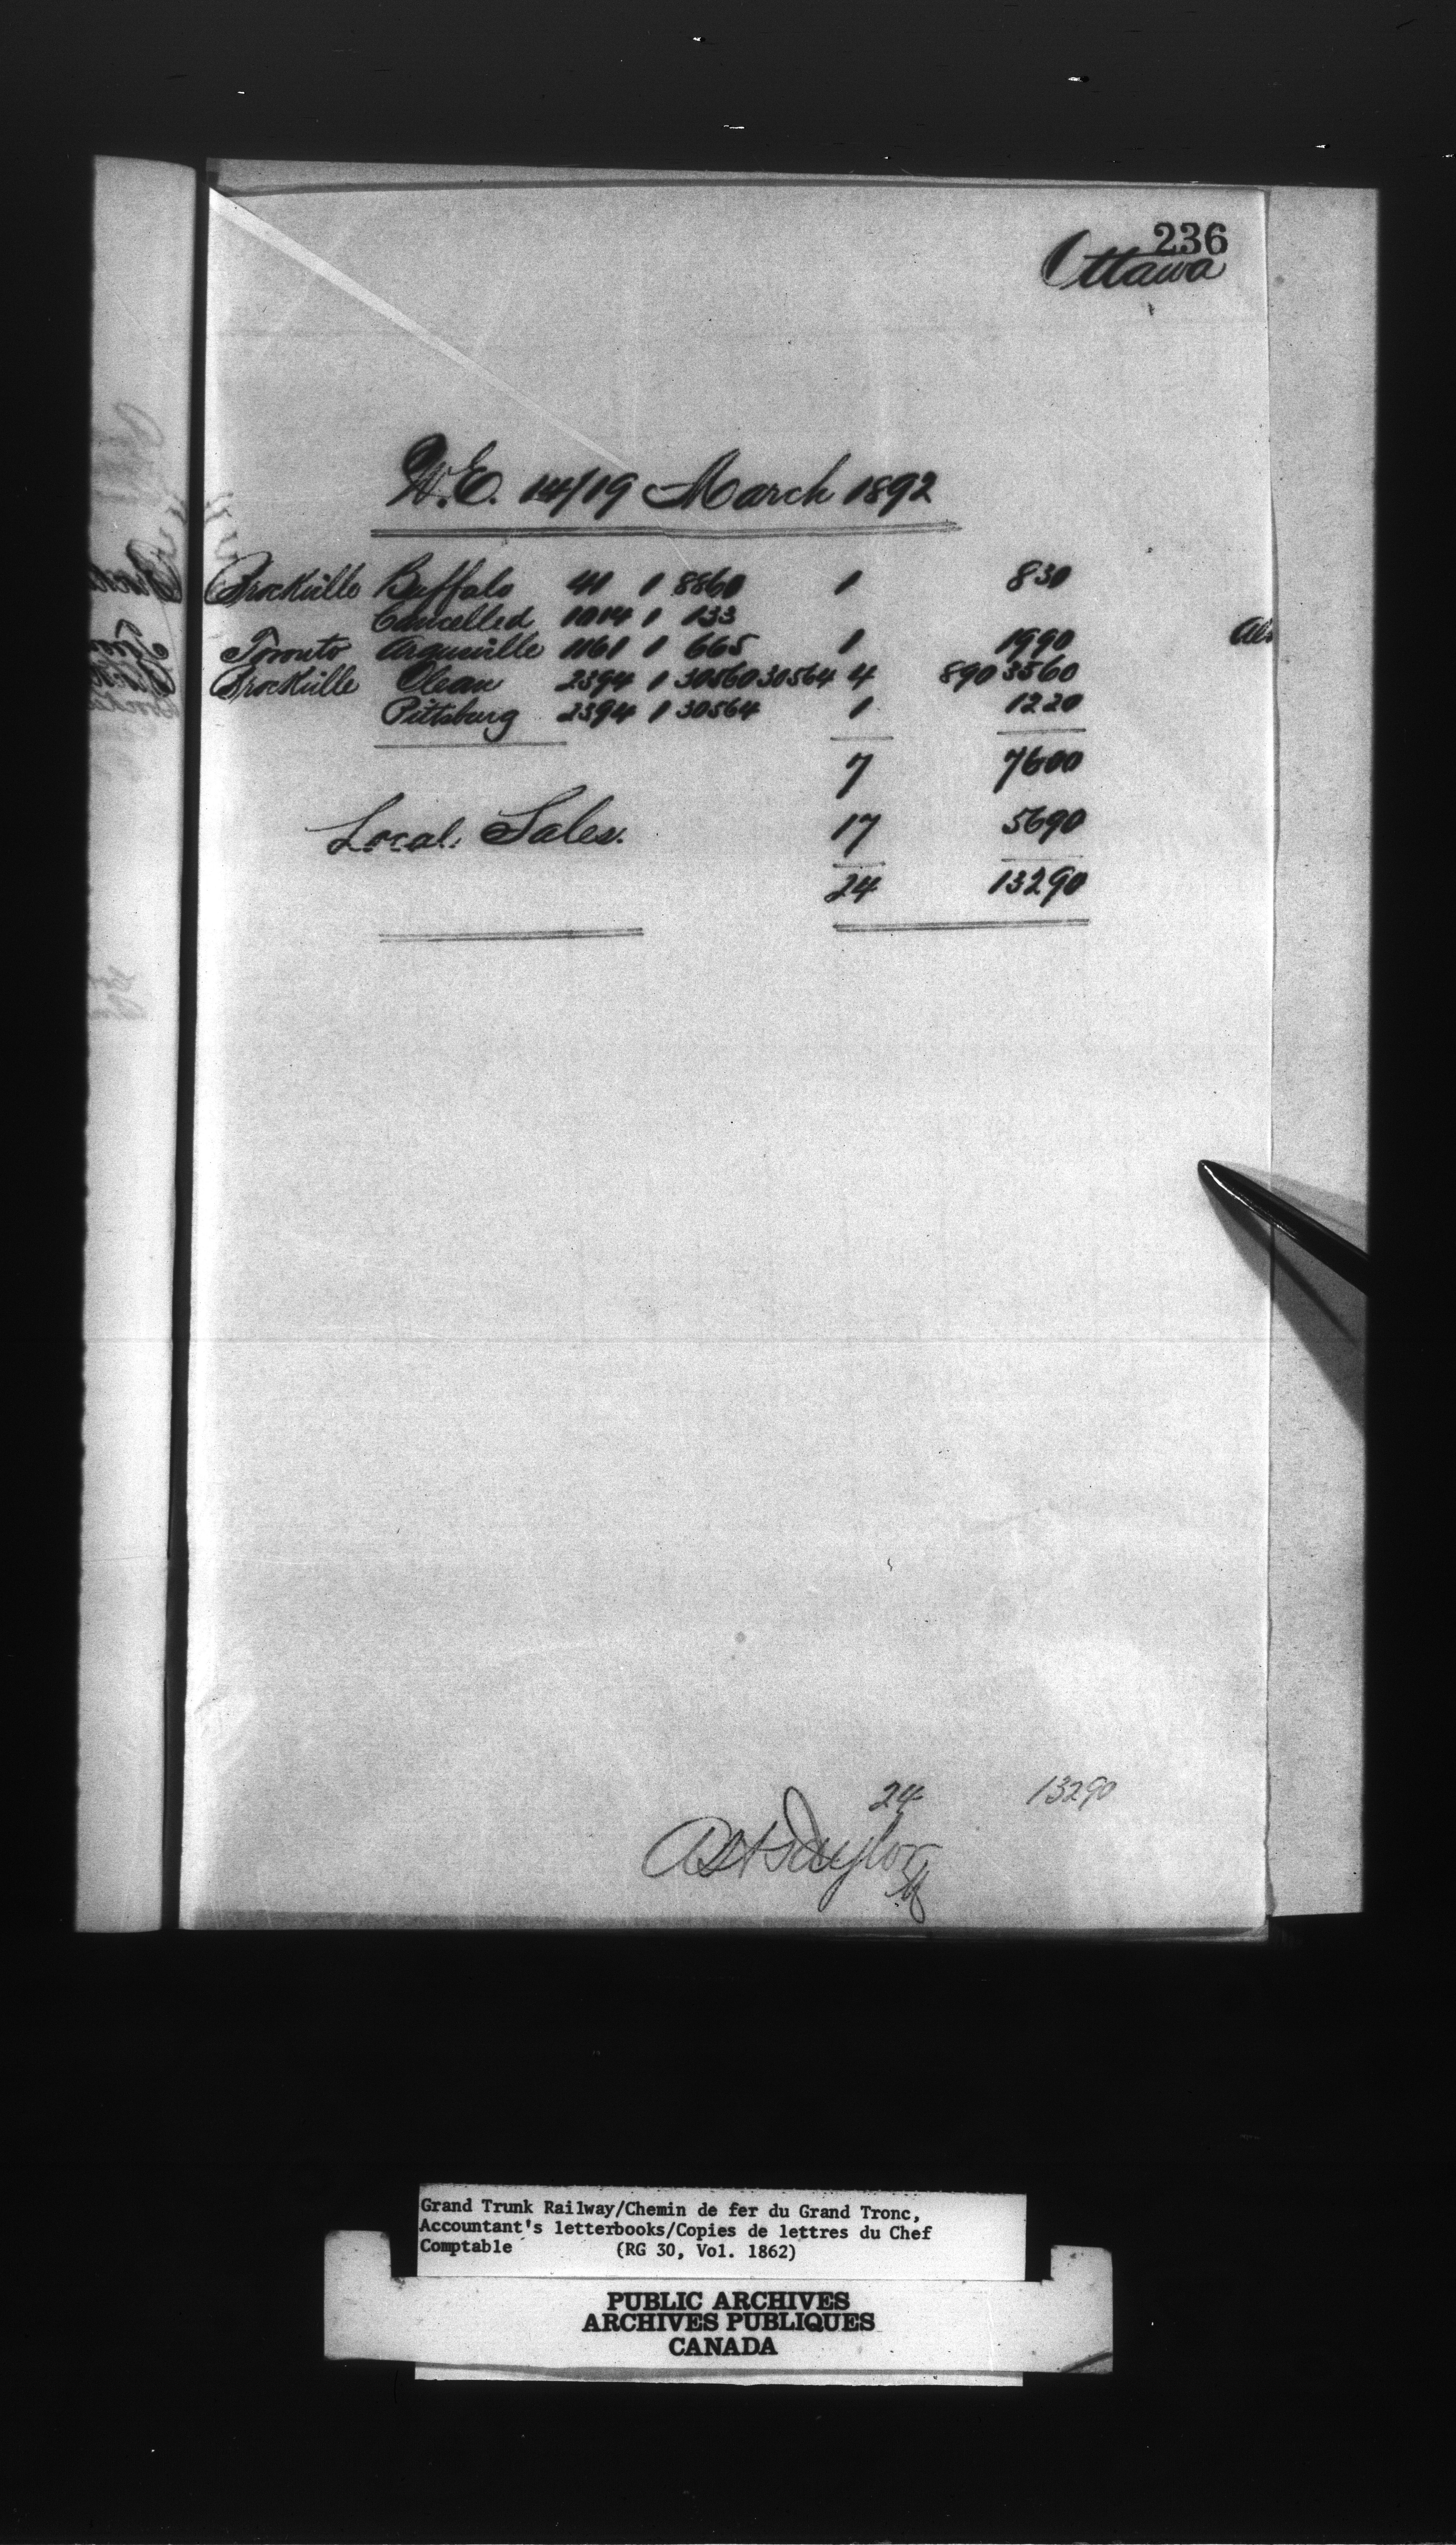 236
Ottawa
W.E. 14/19 March 1892
Brockville Buffalo 41 1 8860 1 830
Cancelled 1014 1 133
Toronto 1161 1 665 1 1990
Brockville Olean 2394 1 30560 30564 4 890 3560
Pittsburg 2394 1 30564 1 1220
7 7600
Local Sales. 17 5690
24 13290
24 13290
Taylor
Grand Trunk Railway/Chemin de fer du Grand Tronc,
Accountant's letterbooks/Copies de lettres du Chef
Comptable (RG 30, Vol. 1862)
PUBLIC ARCHIVES
ARCHIVES PUBLIQUES
CANADA